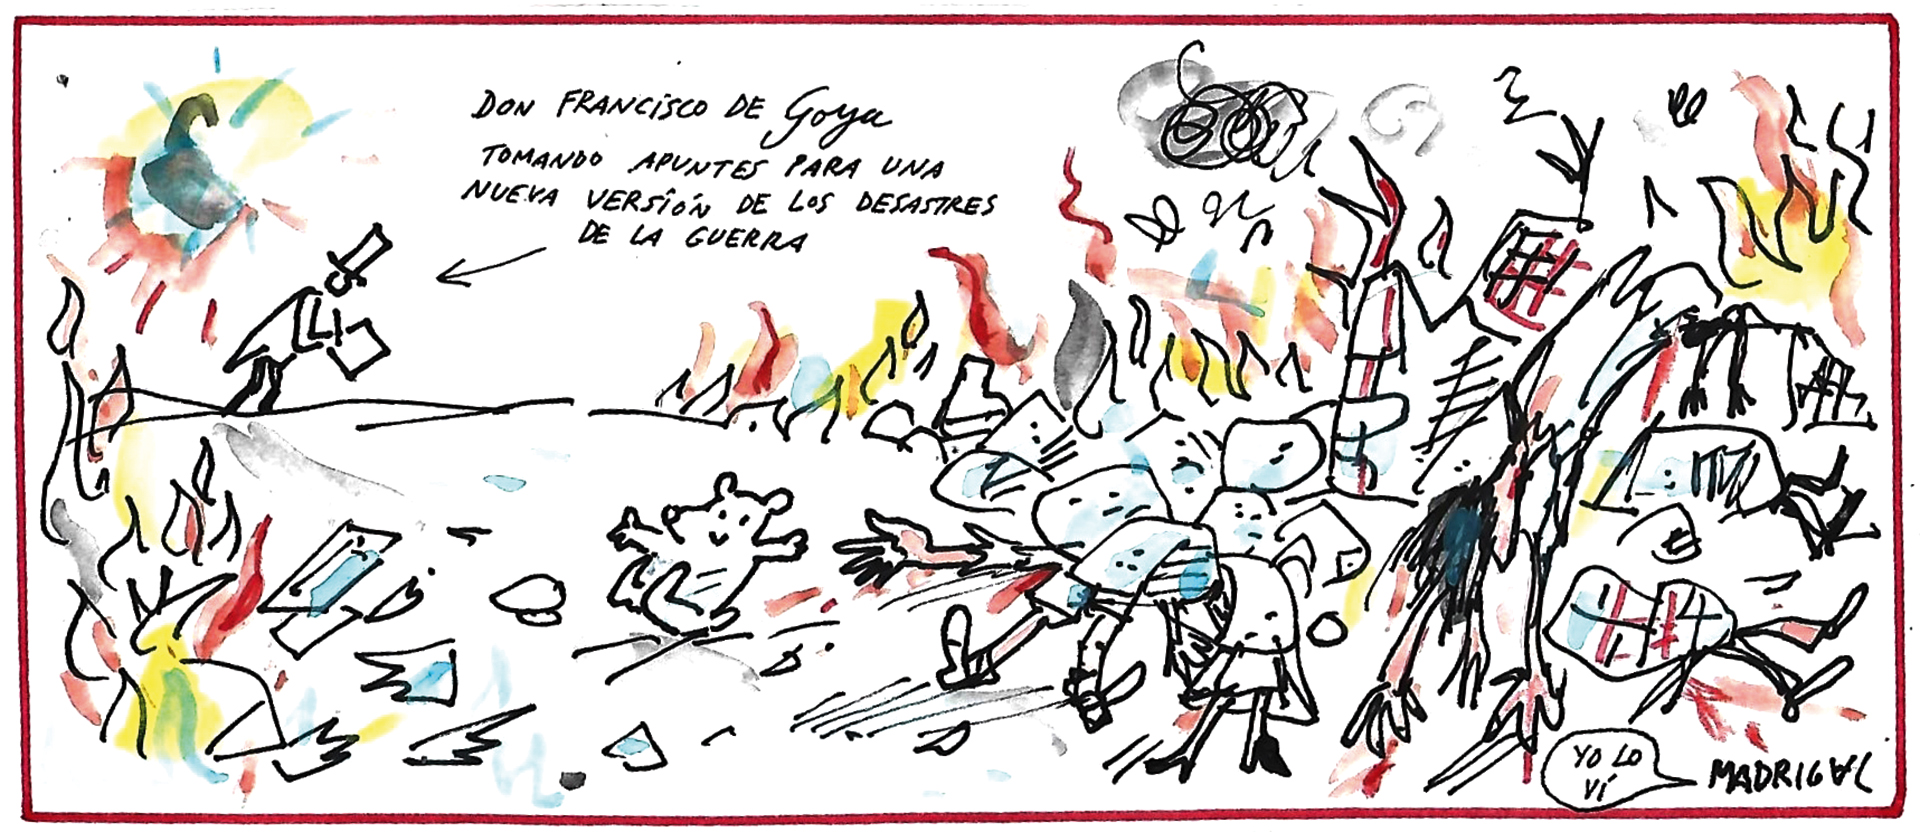 DON FRANCISCO DE Goya
TOMANDO APUNTES PARA UNA
NUEVA VERSIÓN DE LOS DESASTRES
DE LA GUERRA
YO LO
VÍ
MADRIGAL